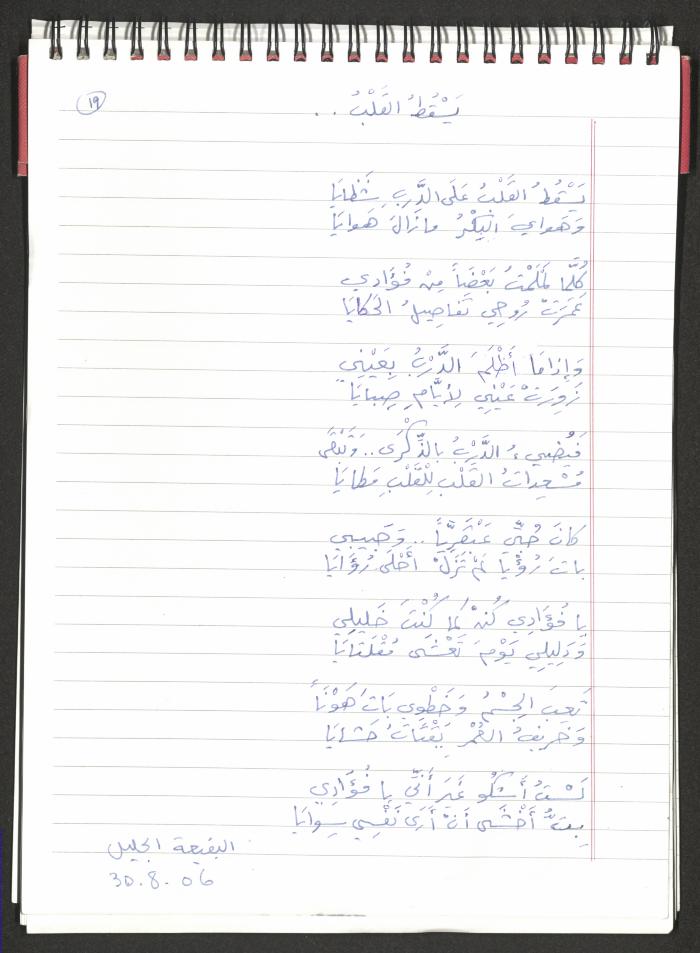 ١٩
يَسْقُطُ القَلْبُ . .
يَسْقُطُ القَلْبُ عَلَى الدَّرْبِ شَظَايَا
وَهَوايَ البِكْرُ مازَالَ هَوايَا
كُلَّما لَمْلَمْتُ بَعْضَاً مِنْ فُؤَادِي
غَمَرَتْ رُوحِي تَفاصِيلُ الحَكايَا
وَإِذامَا أَظْلَمَ الدَّرْبُ بِعَيْنِي
زَوِرَتْ عَيْنِي لِأَيَّامِ صِبايَا
فَيُضِيءُ الدَّرْبُ بالذِّكْرَى .. وَتَبْقَى
مُسْعِداتُ القَلْبِ لِلْقَلْبِ مَطايَا
كانَ حُبِّي عَبْقَرِيَّاً .. وَحَبِيبِي
باتَ رُؤْيَا لَمْ تَزَلْ أَحْلَى رُؤَايَا
يا فُؤَادِي كُنْ كَما كُنْتَ خَلِيلِي
وَدَلِيلِي يَوْمَ تَعْشَى مُقْلَتَايَا
تَعِبَ الجِسْمُ وَخَطْوِي باتَ هَوْنَاً
وَخَرِيفُ العُمْرِ يَقْتَاتُ حَشَايَا
لَسْتُ أَشْكُو غَيْرَ أَنِّي يا فُؤَادِي
بِتُّ أَخْشَى أَنْ أَرَى نَفْسِي سِوايَا
البقيعة الجليل
30.8.06